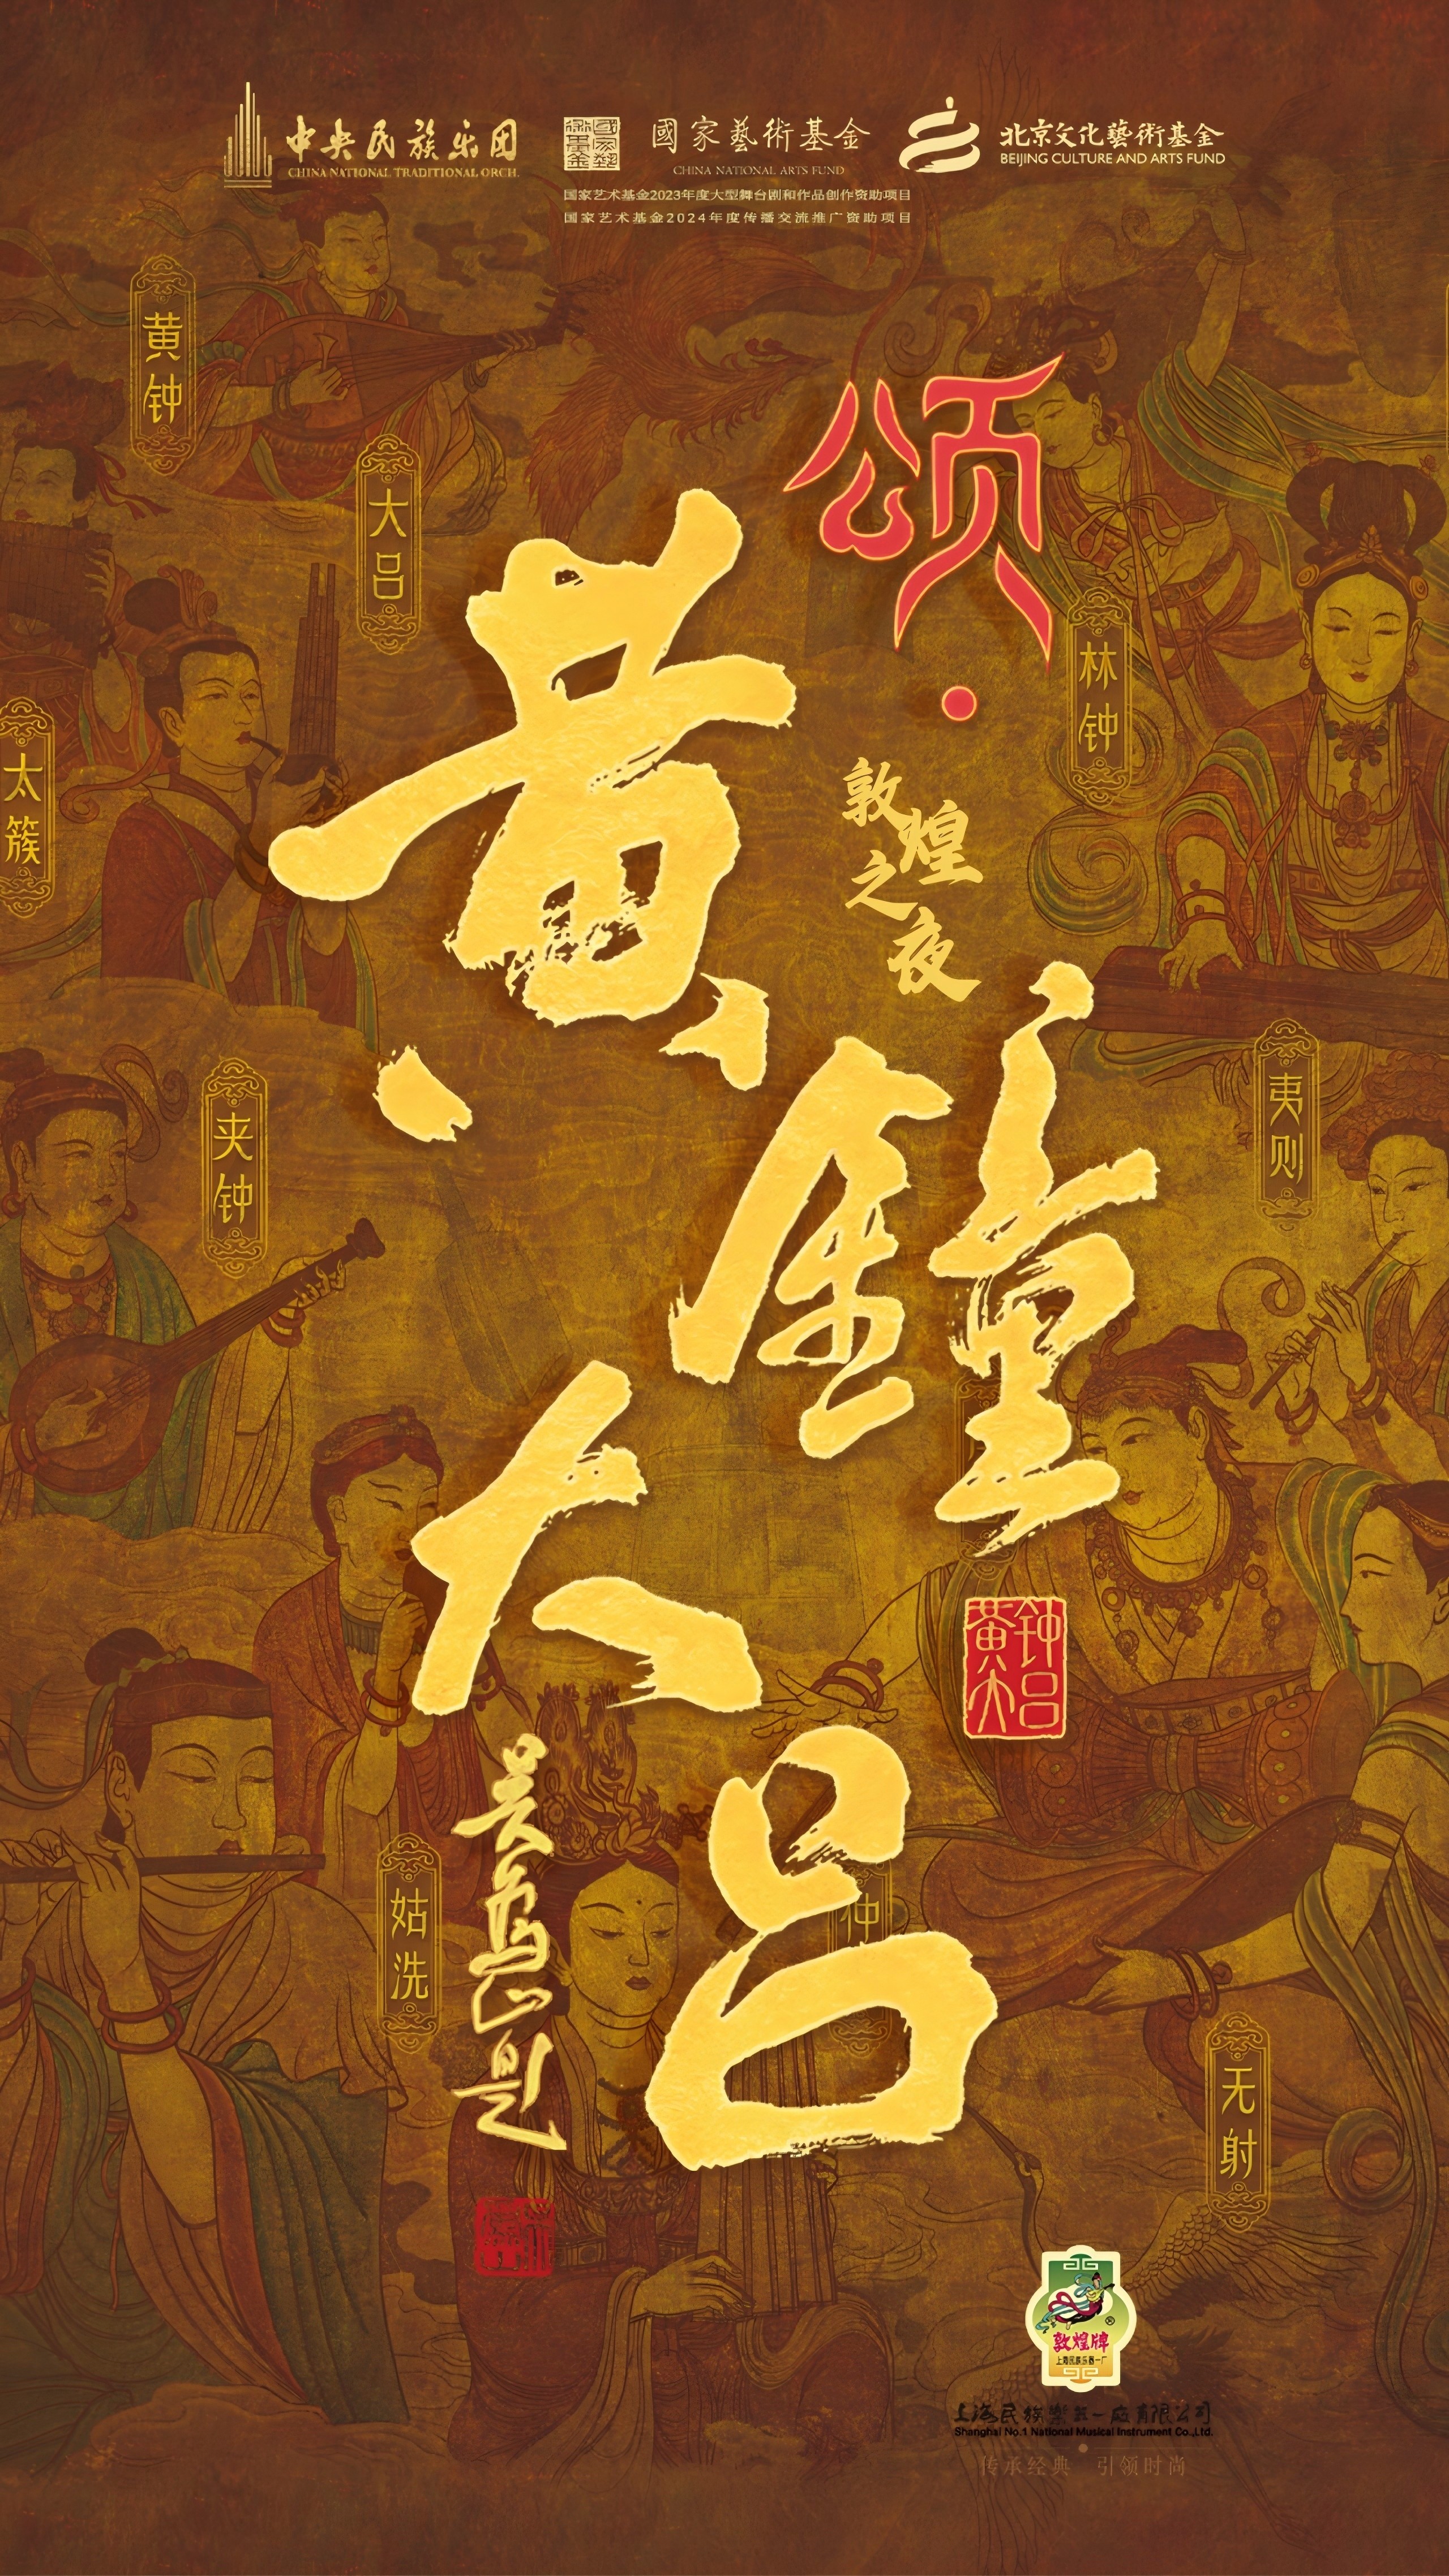 中央民族乐团
CHINA NATIONAL TRADITIONAL ORCH.
國家藝術基金
CHINA NATIONAL ARTS FUND
国家艺术基金2023年度大型舞台剧和作品创作资助项目
国家艺术基金2024年度传播交流推广资助项目
北京文化藝術基金
BEIJING CULTURE AND ARTS FUND
颂·
敦煌之夜
黄鐘大吕
黄钟
大吕
太簇
夹钟
姑洗
仲
林钟
夷则
无射
黄钟大吕
敦煌牌
上海民族乐器一厂
上海民族樂器一廠有限公司
Shanghai No.1 National Musical Instrument Co.,Ltd.
传承经典 · 引领时尚